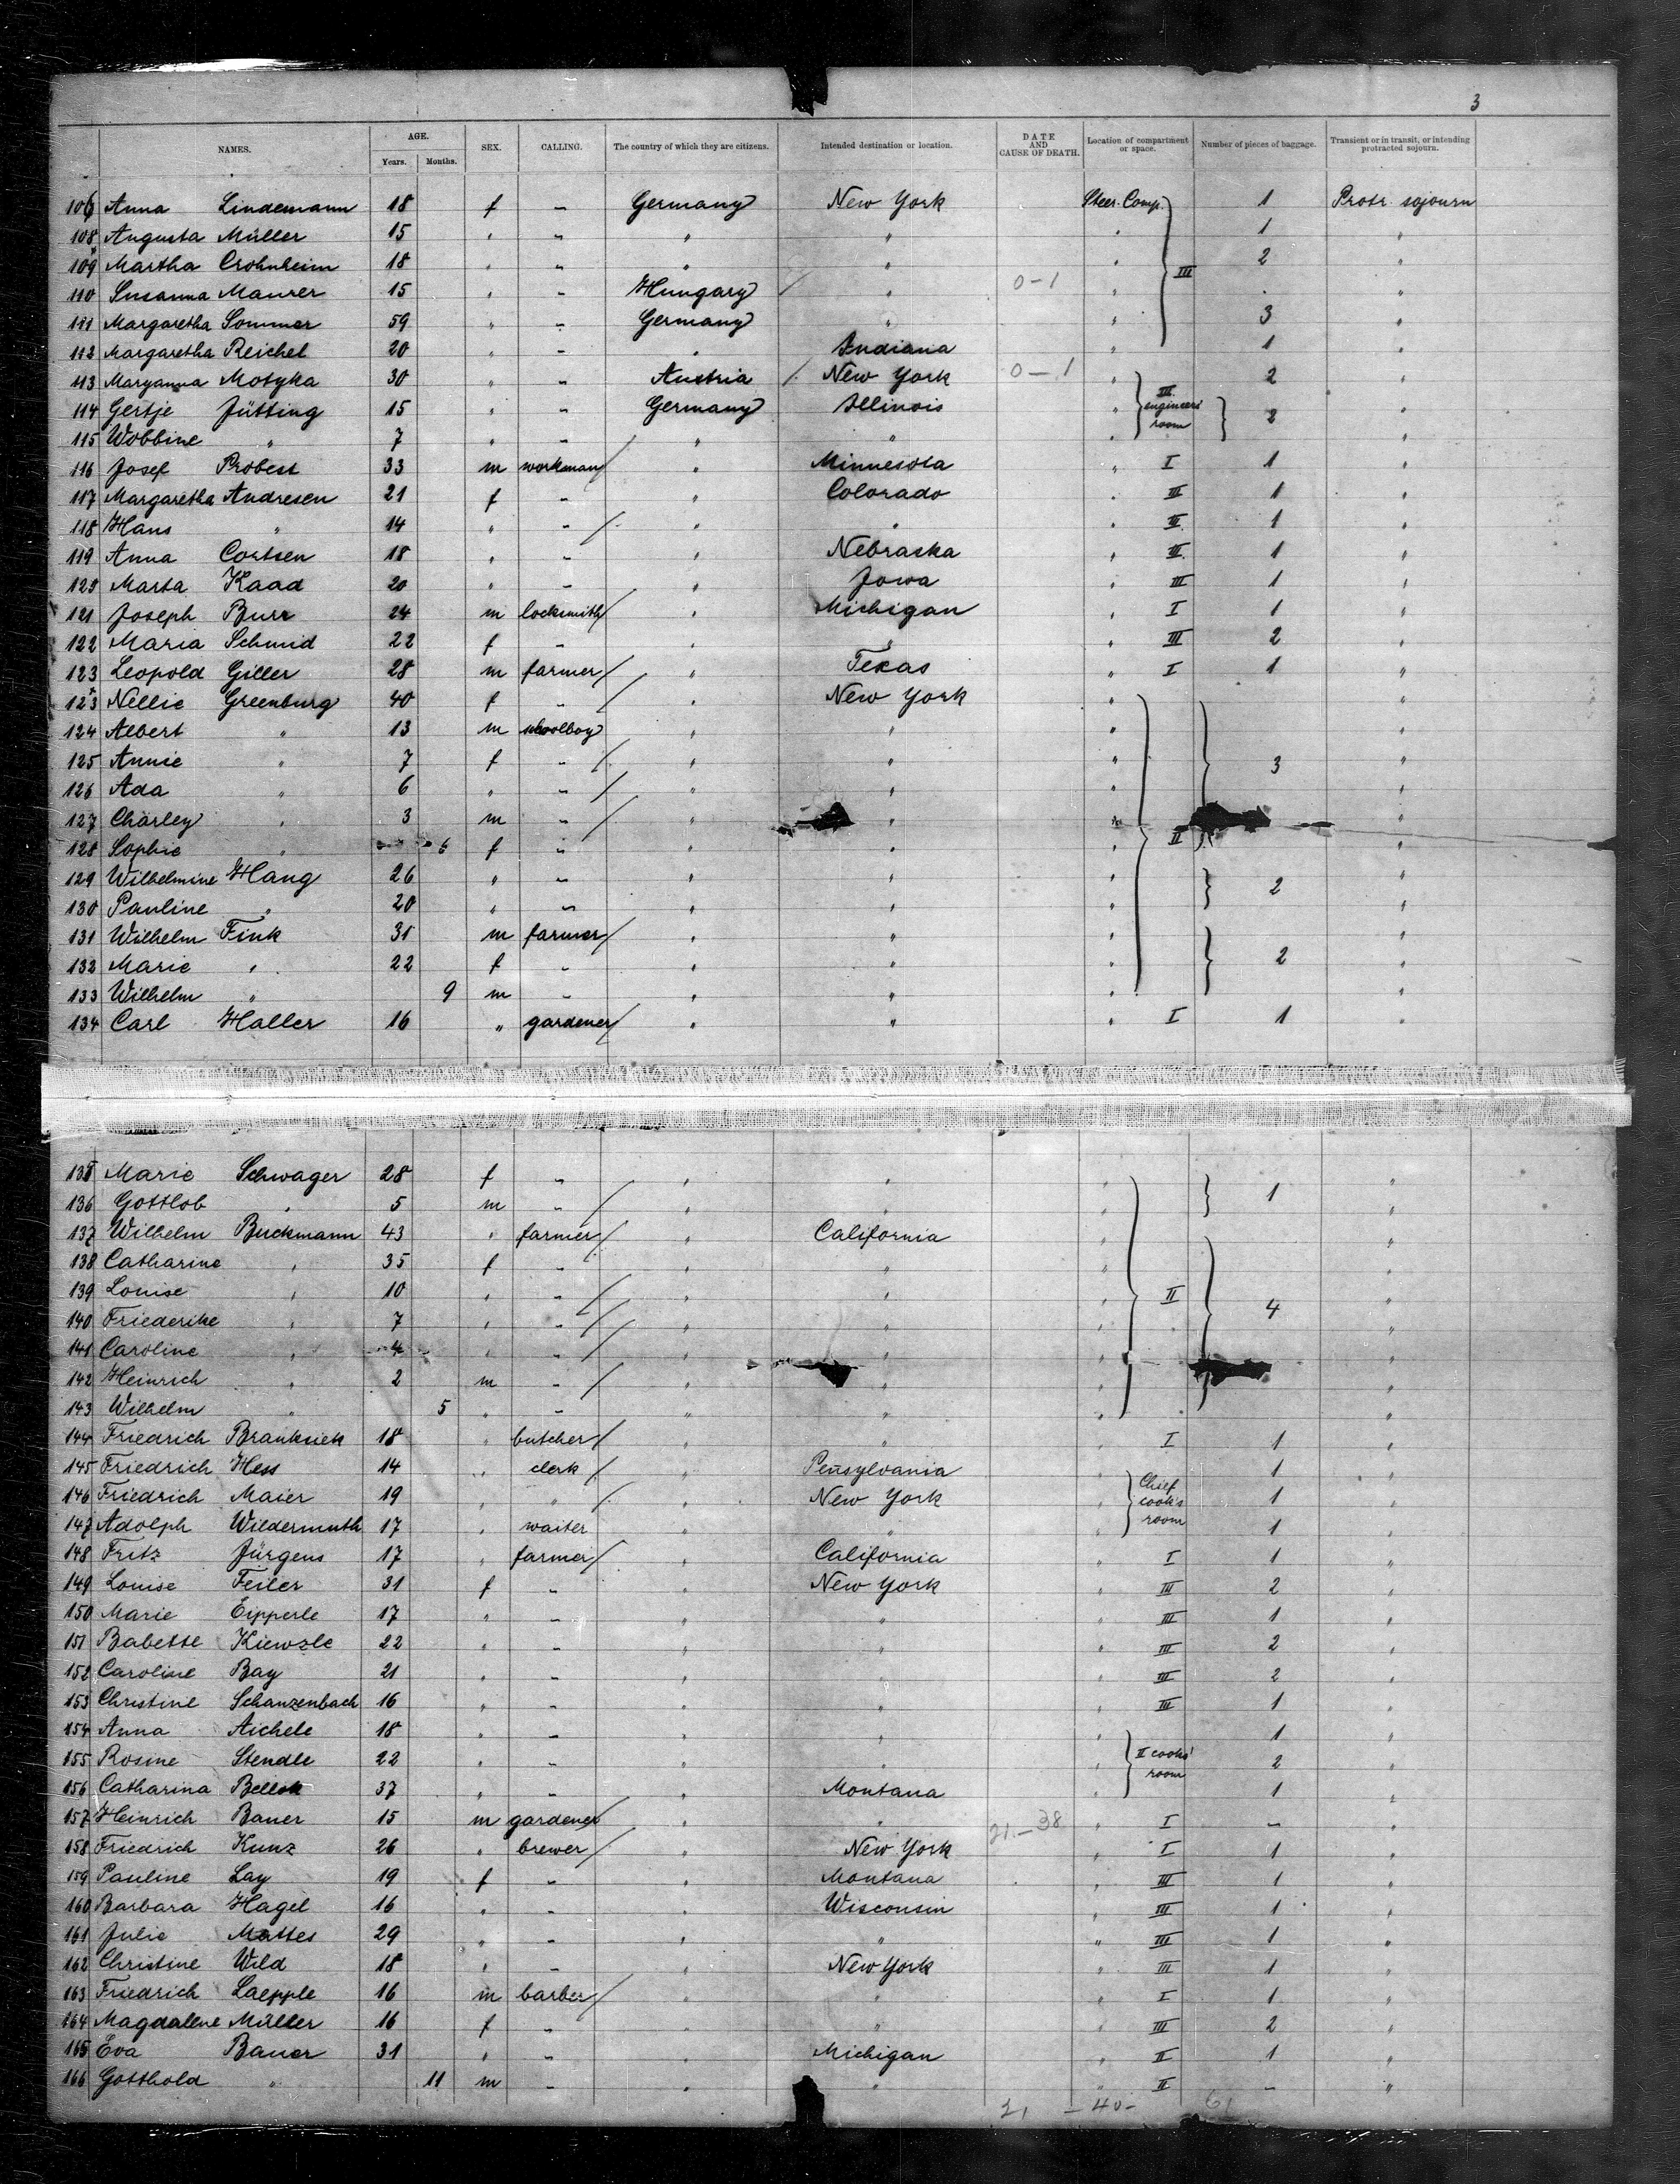 3
NAMES. AGE. Years. Months. SEX. CALLING. The country of which they are citizens. Intended destination or location. DATE AND CAUSE OF DEATH. Location of compartment or space. Number of pieces of baggage. Transient or in transit, or intending protracted sojourn.
Anna Lindemann 18 f - Germany New York Steer. Comp. 1 Protr. sojourn
108 Augusta Müller 15 " - " " " 1 "
109 Martha Crohnheim 18 " - " " " III 2 "
110 Susanna Maurer 15 " - Hungary / " 0-1 " "
111 Margaretha Sommer 59 " - Germany " " 3 "
112 Margaretha Reichel 20 " - " Indiana " 1 "
113 Maryanna Motyka 30 " - Austria / New York 0-1 " III. engineers' room 2 "
114 Gertje Jütting 15 " - Germany Illinois " 2 "
115 Wobbine " 7 " - / " " " "
116 Josef Probest 33 m workman / " Minnesota " I 1 "
117 Margaretha Andresen 21 f - " Colorado " III 1 "
118 Hans " 14 " - / " " " III 1 "
119 Anna Cortsen 18 " - " Nebraska " III 1 "
120 Marta Kaad 20 " - " Jowa " III 1 "
121 Joseph Burr 24 m locksmith / " Michigan " I 1 "
122 Maria Schmid 22 f - " " " III 2 "
123 Leopold Giller 28 m farmer / " Texas " I 1 "
123 Nellie Greenburg 40 f - / " New York " "
124 Albert " 13 m schoolboy " " " "
125 Annie " 7 f - / " " " 3 "
126 Ada " 6 " - / " " " "
127 Charley " 3 m - / " " " "
128 Sophie " 6 f - " " " II "
129 Wilhelmine Haug 26 " - " " " 2 "
130 Pauline " 20 " - " " " "
131 Wilhelm Fink 31 m farmer / " " " "
132 Marie " 22 f - " " " 2 "
133 Wilhelm " 9 m - " " " "
134 Carl Haller 16 " gardener / " " " I 1 "
135 Marie Schwager 28 f - " " " 1 "
136 Gottlob " 5 m - / " " " "
137 Wilhelm Buckmann 43 " farmer / " California " "
138 Catharine " 35 f - " " " "
139 Louise " 10 " - / " " " II "
140 Friederike " 7 " - / " " " 4 "
141 Caroline " 4 " - / " " " "
142 Heinrich " 2 m - / " " " "
143 Wilhelm " 5 " - " " " "
144 Friedrich Branksiek 18 " butcher / " " " I 1 "
145 Friedrich Hess 14 " clerk / " Pensylvania " Chief cook's room 1 "
146 Friedrich Maier 19 " " / " New York " 1 "
147 Adolph Wildermuth 17 " waiter " " " 1 "
148 Fritz Jürgens 17 " farmer / " California " I 1 "
149 Louise Feiler 31 f - " New York " III 2 "
150 Marie Eipperle 17 " - " " " III 1 "
151 Babette 22 " - " " " III 2 "
152 Caroline Bay 21 " - " " " III 2 "
153 Christine Schanzenbach 16 " - " " " III 1 "
154 Anna Aichele 18 " - " " " 1 "
155 Rosine Stendle 22 " - " " " II cooks' room 2 "
156 Catharina 37 " - " Montana " 1 "
157 Heinrich Bauer 15 m gardener / " " 21-38 " I - "
158 Friedrich Kunz 26 " brewer / " New York " I 1 "
159 Pauline Lay 19 f - " Montana " III 1 "
160 Barbara Hagel 16 " - " Wisconsin " III 1 "
161 Julie Mattes 29 " - " " " III 1 "
162 Christine Wild 18 " - " New York " III 1 "
163 Friedrich Laepple 16 m barber / " " " I 1 "
164 Magdalene Müller 16 f - " " " III 2 "
165 Eva Bauer 31 " - " Michigan " II 1 "
166 Gotthold " 11 m - " " " II - "
21 - 40 - 61